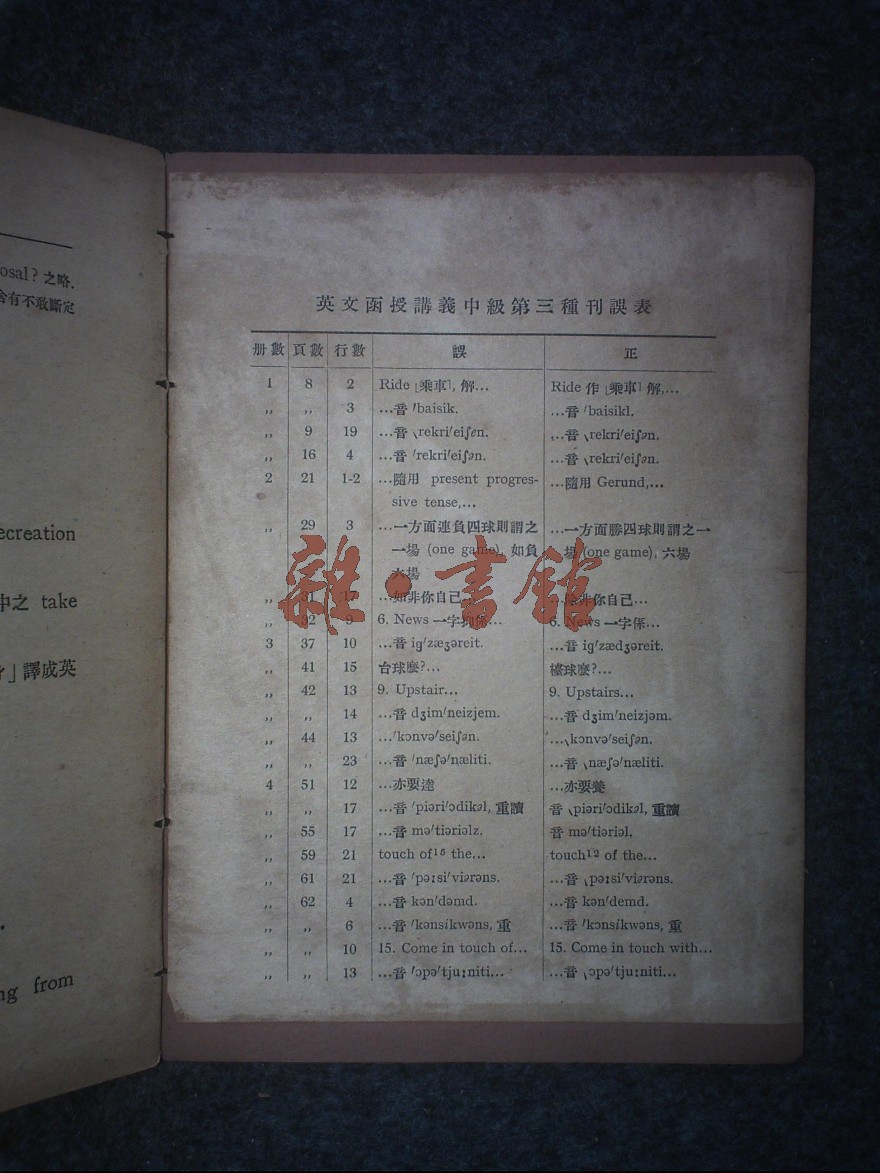 osal? 之略.
含有不敢斷定
ecreation
中之 take
」譯成英
ng from
英文函授講義中級第三種刊誤表
册數 頁數 行數 誤 正
1 8 2 Ride [乘車], 解... Ride 作 [乘車] 解,...
,, ,, 3 ...音 ′baisik. ...音 ′baisikl.
,, 9 19 ...音 ˎrekri′eiʃen. ...音 ˎrekri′eiʃən.
,, 16 4 ...音 ′rekri′eiʃən. ...音 ˎrekri′eiʃən.
2 21 1-2 ...隨用 present progres- ...隨用 Gerund,...
sive tense,...
,, 29 3 ...一方面連負四球則謂之 ...一方面勝四球則謂之一
一場 (one game), 如負 場 (one game), 六場
六場
,, 31 17 ...如非你自己... ...非你自己...
,, 32 9 6. News 一字係... 6. News 一字係...
3 37 10 ...音 ig′zæʒəreit. ...音 ig′zædʒəreit.
,, 41 15 台球麼?... 檯球麼?...
,, 42 13 9. Upstair... 9. Upstairs...
,, ,, 14 ...音 dʒim′neizjem. ...音 dʒim′neizjəm.
,, 44 13 ...′kɔnvə′seiʃən. ...ˎkɔnvə′seiʃən.
,, ,, 23 ...音 ′næʃə′næliti. ...音 ˎnæʃə′næliti.
4 51 12 ...亦要 ...亦要養
,, ,, 17 ...音 ′piəri′ɔdikəl, 重讀 音 ˎpiəri′ɔdikəl, 重讀
,, 55 17 ...音 mə′tiəriəlz. 音 mə′tiəriəl.
,, 59 21 touch of¹⁵ the... touch¹² of the...
,, 61 21 ...音 ′pə:si′viərəns. ...音 ˎpə:si′viərəns.
,, 62 4 ...音 kən′dəmd. ...音 kən′demd.
,, ,, 6 ...音 ′kənsikwəns, 重 ...音 ′kɔnsikwəns, 重
,, ,, 10 15. Come in touch of... 15. Come in touch with...
,, ,, 13 ...音 ′ɔpə′tju:niti... ...音 ˎɔpə′tju:niti...
雜·書館